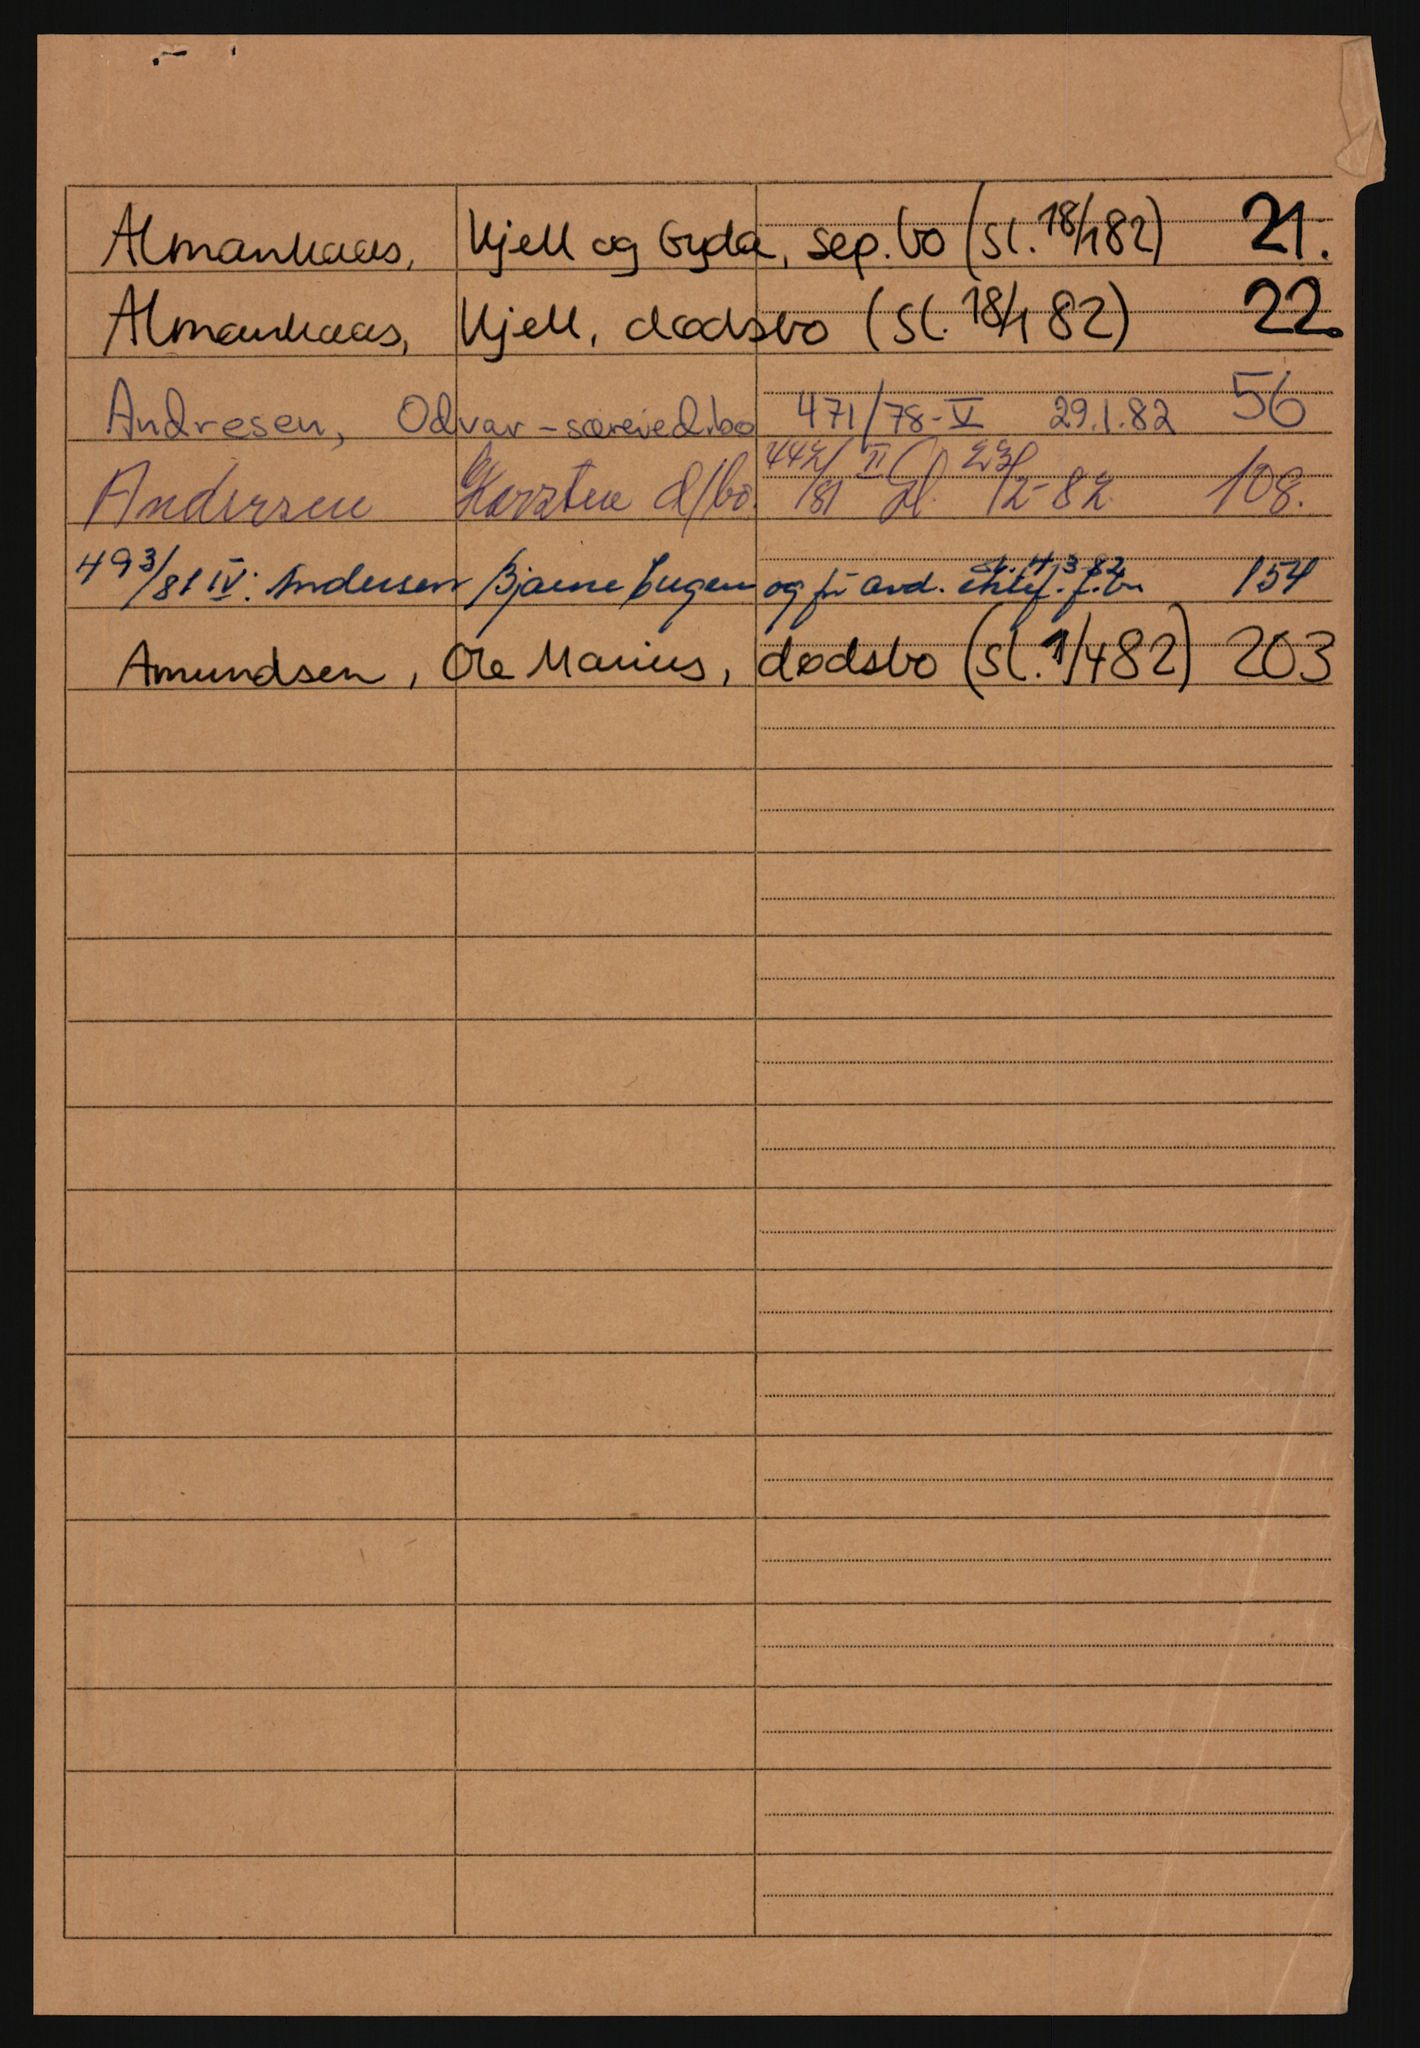 Almankaas, Kjell og Gyda, sep.bo (sl. 18/1 82) 21.
Almankaas, Kjell, dødsbo (sl. 18/1 82) 22.
Andresen, Odvar - særeied.bo 471/78-V 29.1.82 56
Andersen Karsten d/bo. 442/81 II sl. 23/2-82. 108.
493/81 IV: Andersen Bjarne Eugen og fr. avd. ektef. f.bo sl. 11.3.82 154
Amundsen, Ole Marius, dødsbo (sl. 1/4 82) 203